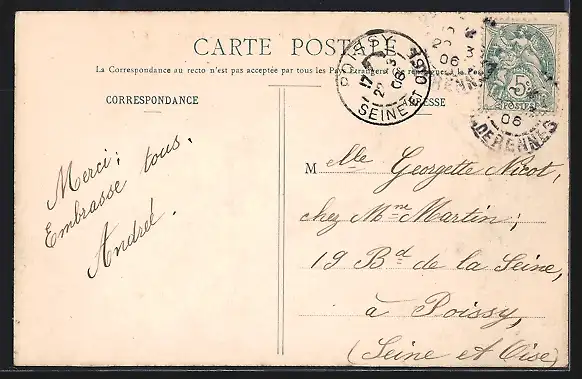 CARTE POSTALE
La Correspondance au recto n'est pas acceptée par tous les Pays Etrangers (Se renseigner à la Poste)
CORRESPONDANCE
ADRESSE
POISSY
17
22 3
06
SEINE ET OISE
06
DE RENNES
5c
POSTES
Merci;
Embrasse tous.
André.
Melle Georgette Nicot,
chez Mme Martin;
19 Bd de la Seine,
à Poissy,
(Seine et Oise)